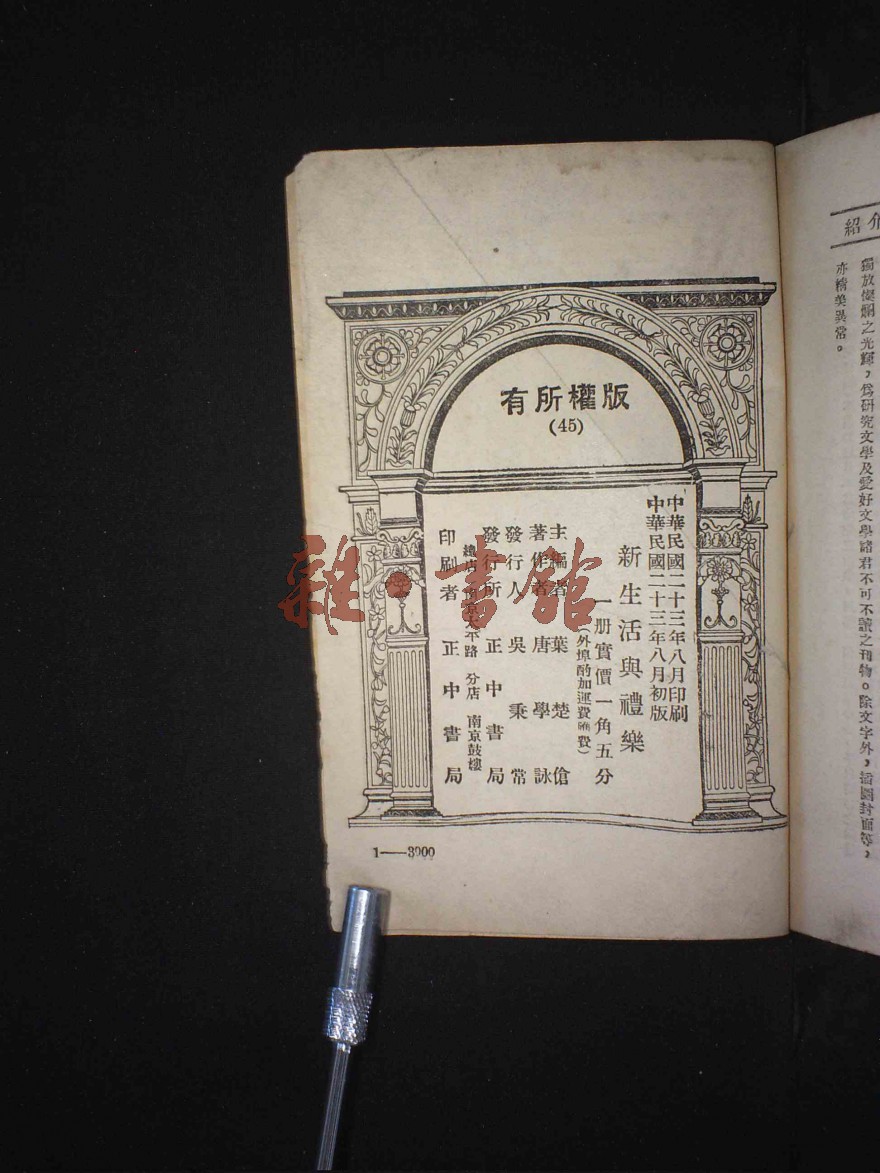 介紹
獨放燦爛之光輝，為研究文學及愛好文學諸君不可不讀之刊物。除文字外，插圖封面等，
亦精美異常。
版權所有
(45)
中華民國二十三年八月印刷
中華民國二十三年八月初版
新生活與禮樂
一册實價一角五分
（外埠酌加運費匯費）
主編者 葉楚傖
著作者 唐學詠
發行人 吳秉常
發行所 正中書局
總店 南京太平路 分店 南京鼓樓
印刷者 正中書局
1——3000
雜·書館